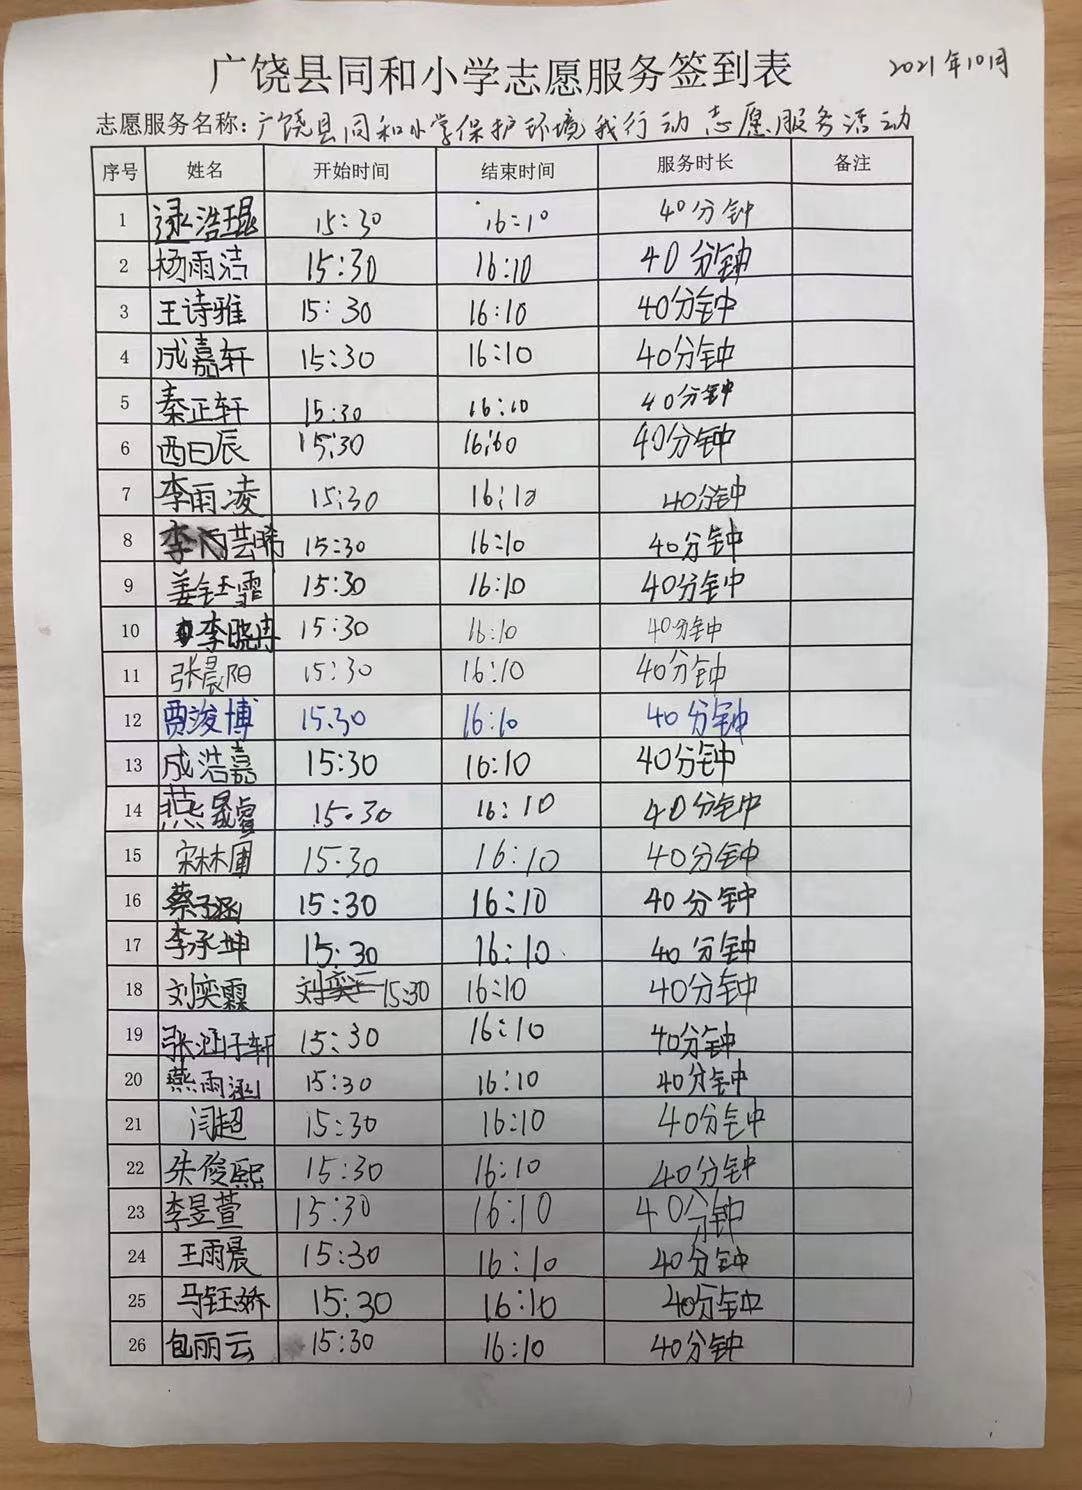 广饶县同和小学志愿服务签到表
2021年10月
志愿服务名称：广饶县同和小学保护环境我行动志愿服务活动
序号 姓名 开始时间 结束时间 服务时长 备注
1 逯浩琨 15:30 16:10 40分钟
2 杨雨洁 15:30 16:10 40分钟
3 王诗雅 15:30 16:10 40分钟
4 成嘉轩 15:30 16:10 40分钟
5 秦正轩 15:30 16:10 40分钟
6 西曰辰 15:30 16:60 40分钟
7 李雨凌 15:30 16:10 40分钟
8 李芸晞 15:30 16:10 40分钟
9 姜钰霏 15:30 16:10 40分钟
10 李晓冉 15:30 16:10 40分钟
11 张晨阳 15:30 16:10 40分钟
12 贾浚博 15.30 16:10 40分钟
13 成浩嘉 15:30 16:10 40分钟
14 燕晟睿 15.30 16:10 40分钟
15 宋林 15.30 16:10 40分钟
16 蔡子涵 15:30 16:10 40分钟
17 李承坤 15:30 16:10 40分钟
18 刘奕霖 15:30 16:10 40分钟
19 张涵仔轩 15:30 16:10 40分钟
20 燕雨涵 15:30 16:10 40分钟
21 闫超 15:30 16:10 40分钟
22 朱俊熙 15:30 16:10 40分钟
23 李昱萱 15:30 16:10 40分钟
24 王雨晨 15:30 16:10 40分钟
25 马钰娇 15:30 16:10 40分钟
26 包丽云 15:30 16:10 40分钟